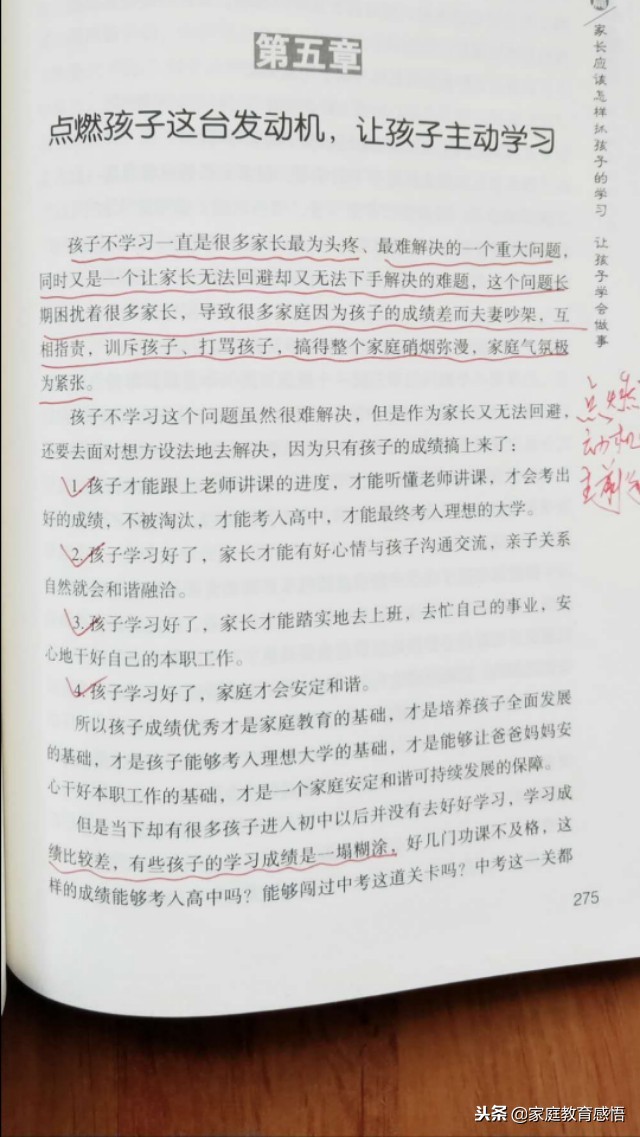 第五章
点燃孩子这台发动机，让孩子主动学习
孩子不学习一直是很多家长最为头疼、最难解决的一个重大问题，
同时又是一个让家长无法回避却又无法下手解决的难题，这个问题长
期困扰着很多家长，导致很多家庭因为孩子的成绩差而夫妻吵架，互
相指责，训斥孩子、打骂孩子，搞得整个家庭硝烟弥漫，家庭气氛极
为紧张。
孩子不学习这个问题虽然很难解决，但是作为家长又无法回避，
还要去面对想方设法地去解决，因为只有孩子的成绩搞上来了：
1.孩子才能跟上老师讲课的进度，才能听懂老师讲课，才会考出
好的成绩，不被淘汰，才能考入高中，才能最终考入理想的大学。
2.孩子学习好了，家长才能有好心情与孩子沟通交流，亲子关系
自然就会和谐融洽。
3.孩子学习好了，家长才能踏实地去上班，去忙自己的事业，安
心地干好自己的本职工作。
4.孩子学习好了，家庭才会安定和谐。
所以孩子成绩优秀才是家庭教育的基础，才是培养孩子全面发展
的基础，才是孩子能够考入理想大学的基础，才是能够让爸爸妈妈安
心干好本职工作的基础，才是一个家庭安定和谐可持续发展的保障。
但是当下却有很多孩子进入初中以后并没有去好好学习，学习成
绩比较差，有些孩子的学习成绩是一塌糊涂，好几门功课不及格，这
样的成绩能够考入高中吗？能够闯过中考这道关卡吗？中考这一关都
275
家长应该怎样抓孩子的学习 让孩子学会做事
点燃
动机
头条 @家庭教育感悟